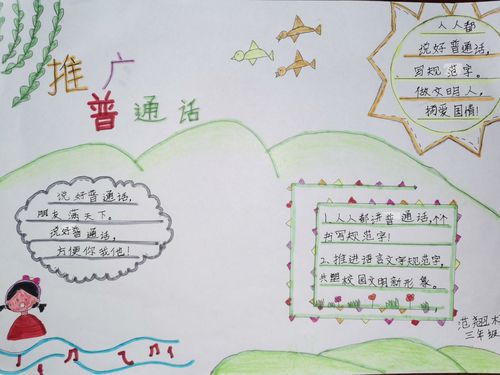 推广
普通话
人人都
说好普通话,
写规范字。
做文明人,
抒爱国情!
说好普通话,
朋友满天下。
说好普通话,
方便你我他!
1、人人都讲普通话,个个
书写规范字!
2、推进语言文字规范字,
共塑校园文明新形象。
三年级